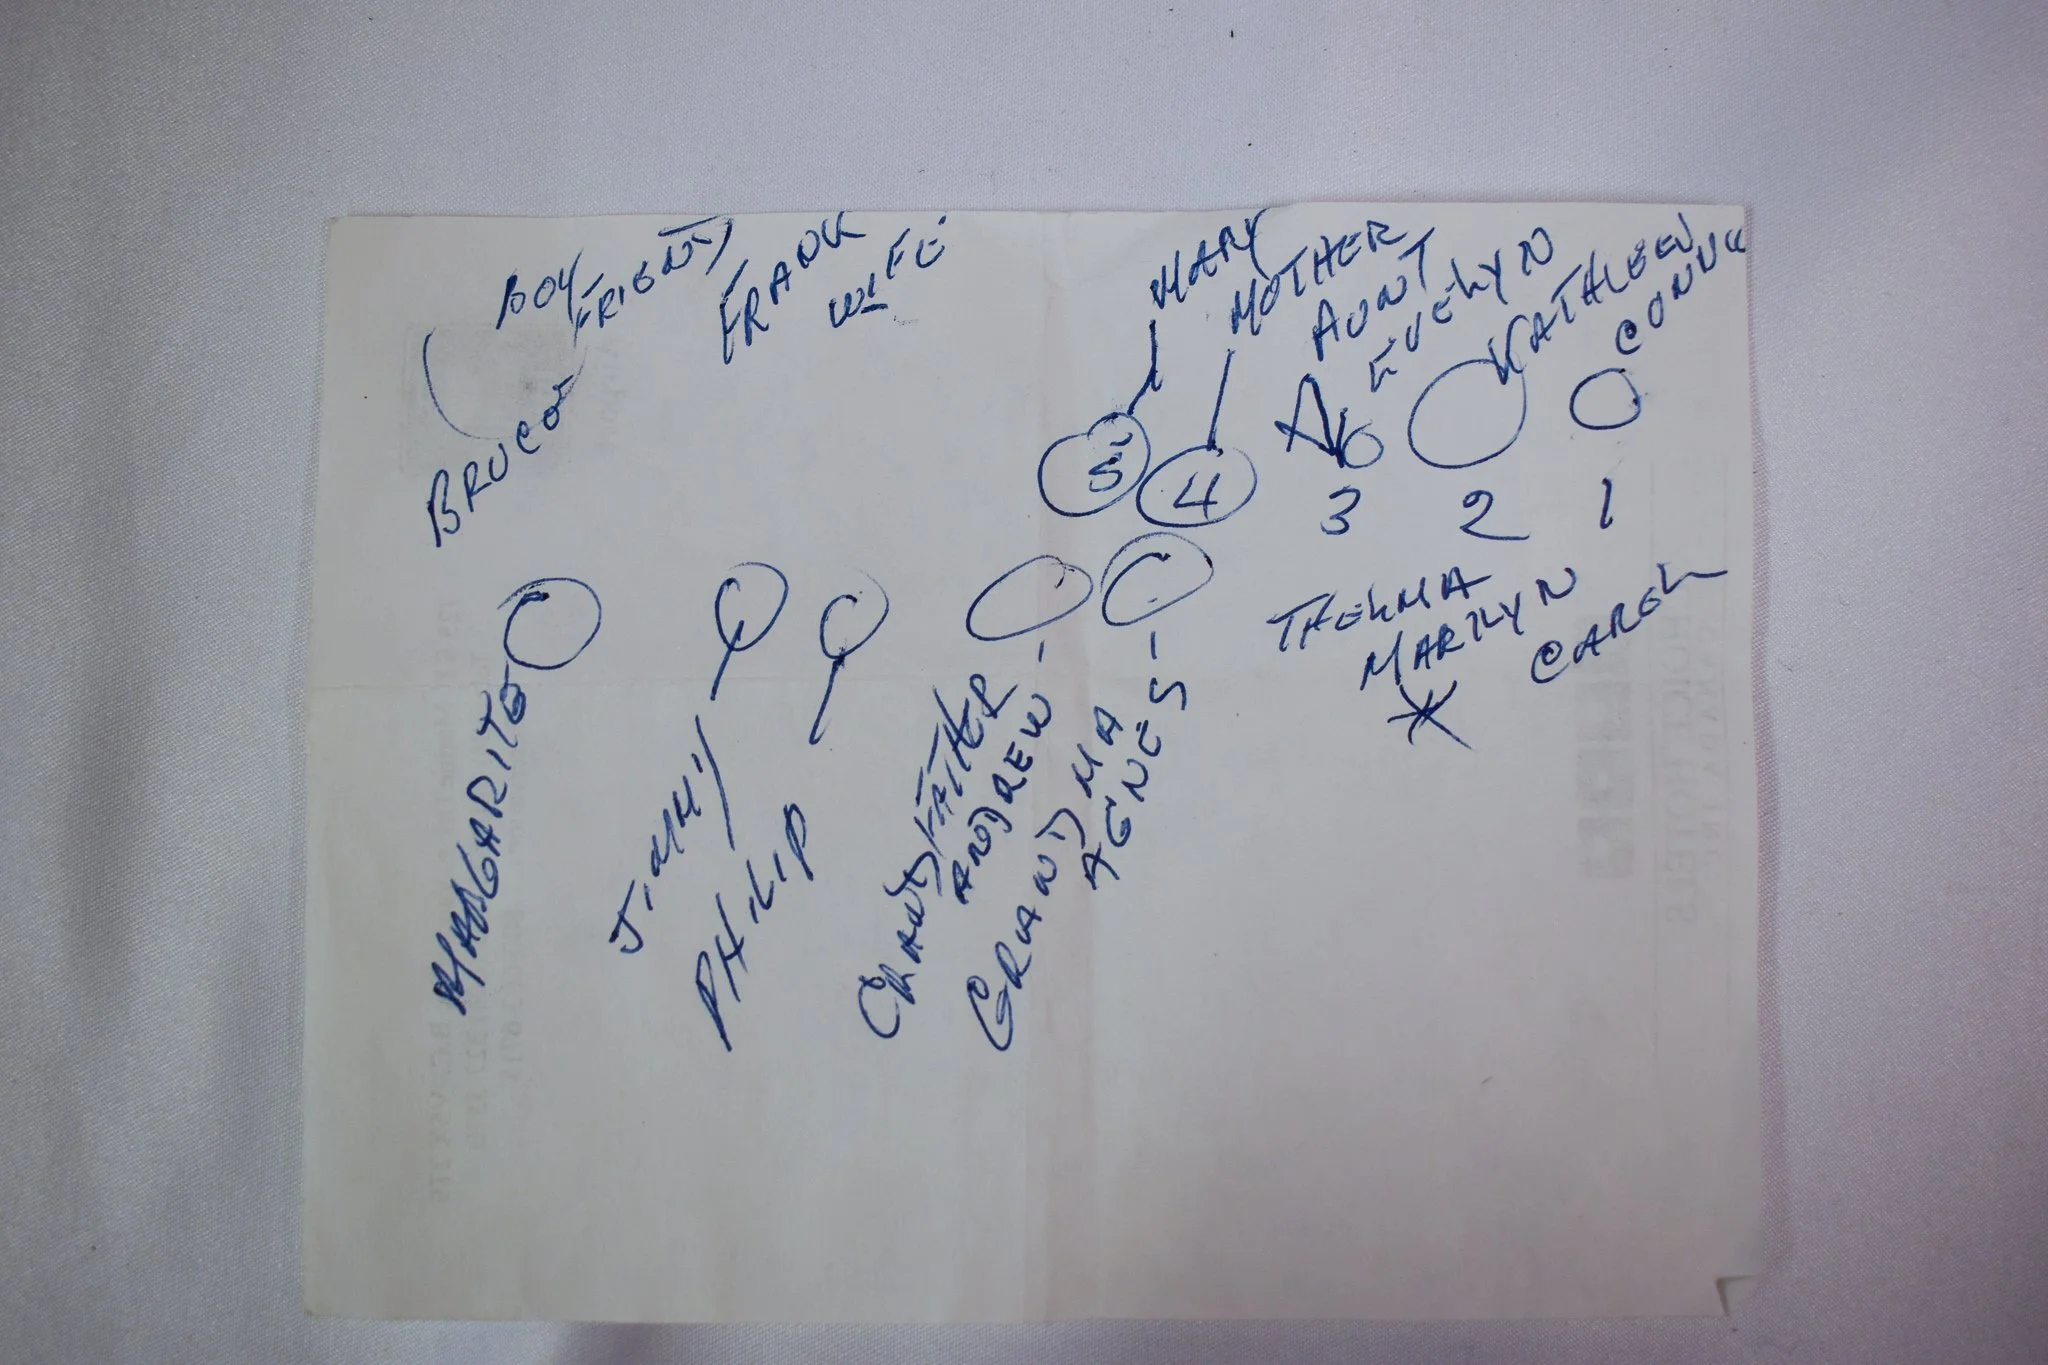 BOY
FRIEND
FRANK
WIFE
MARY
MOTHER
AUNT
EVELYN
KATHLEEN
CONNIE
5
4
3
2
1
THELMA
MARILYN
*
CAROL
MARGARITE
JIMMY
PHILIP
GRANDFATHER
ANDREW
GRANDMA
AGNES